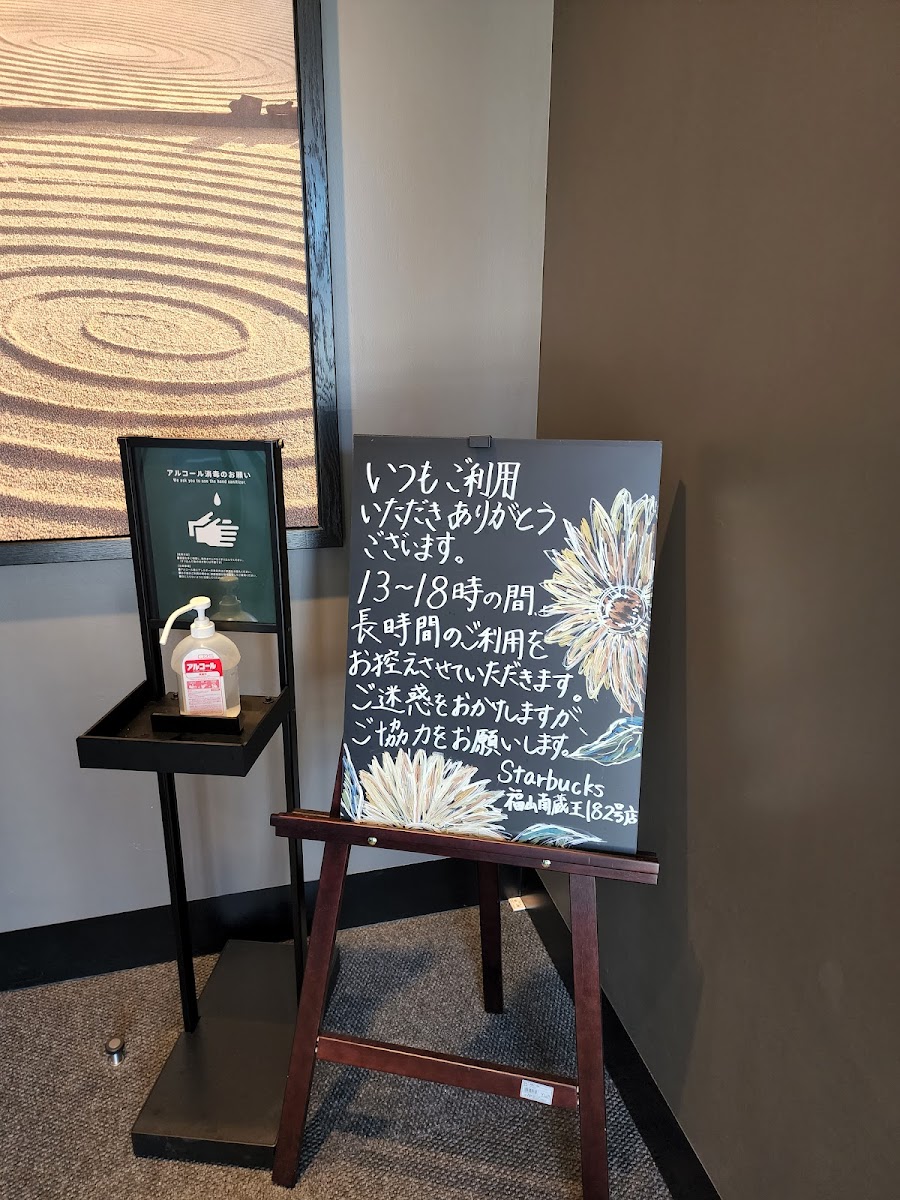 アルコール消毒のお願い
We ask you to use the hand sanitizer.
アルコール
いつもご利用
いただきありがとう
ございます。
13~18時の間、
長時間のご利用を
お控えさせていただきます。
ご迷惑をおかけしますが、
ご協力をお願いします。
Starbucks
福山南蔵王182号店